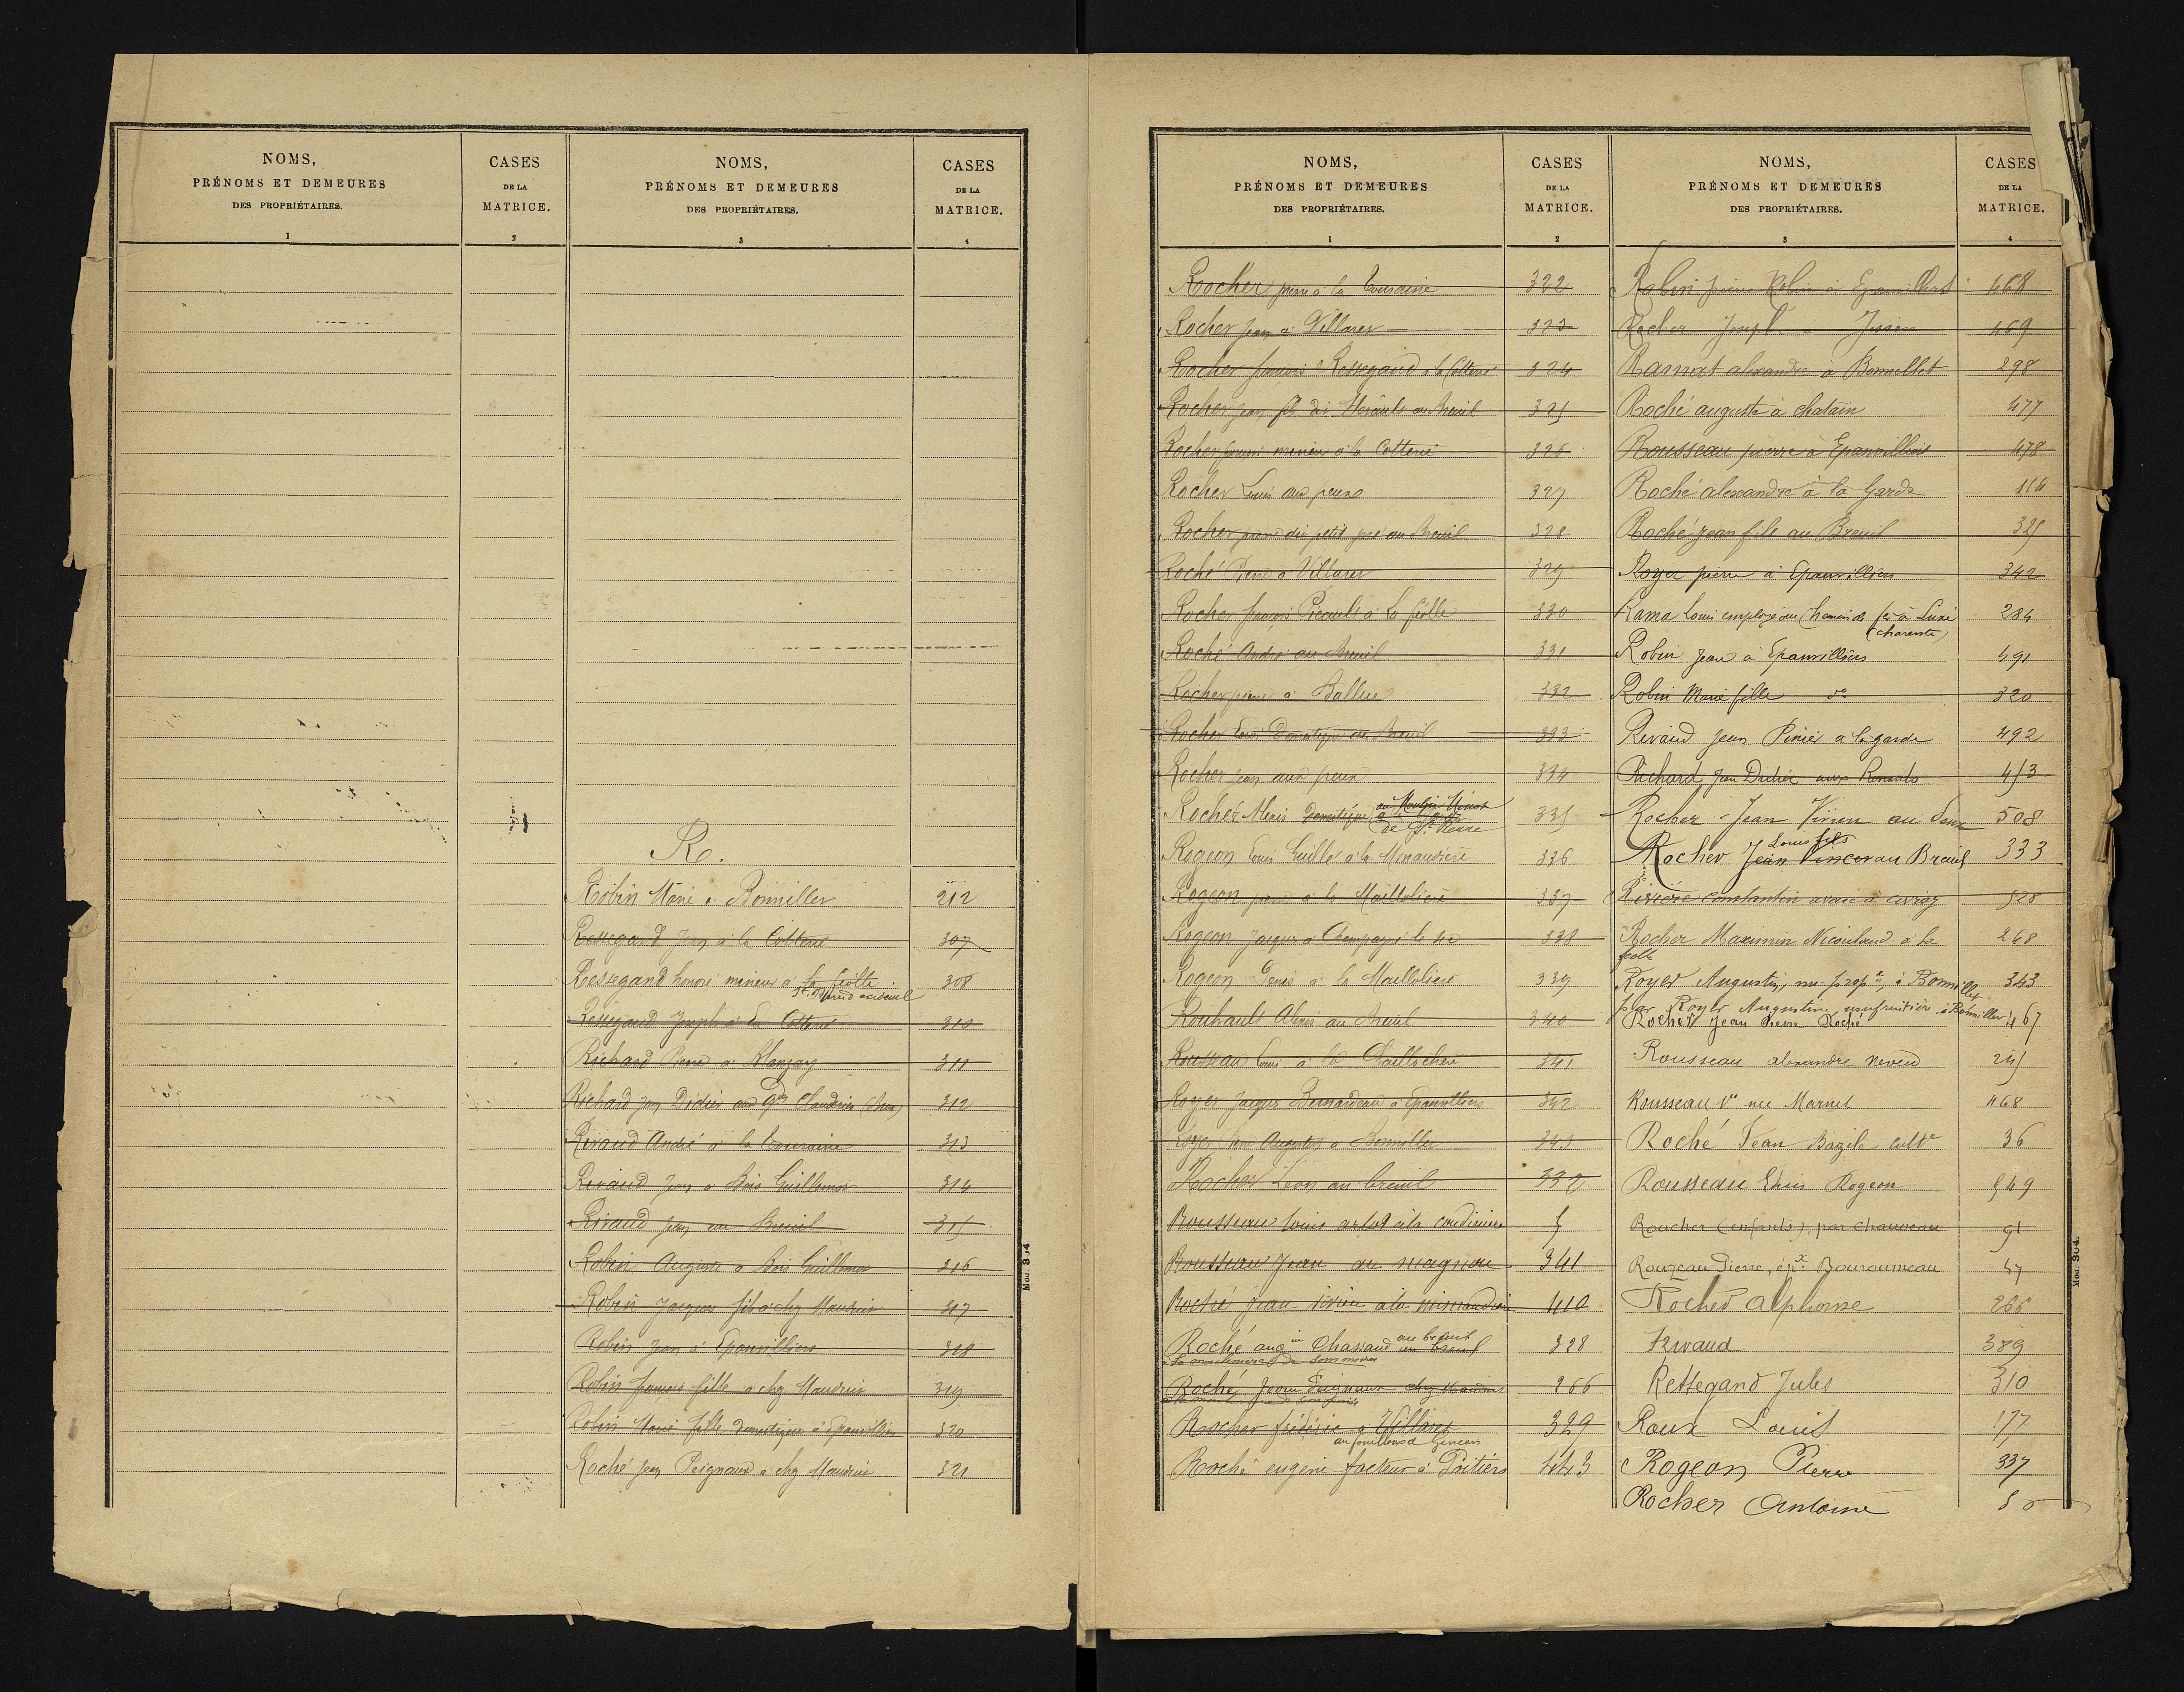 NOMS,
PRÉNOMS ET DEMEURES
DES PROPRIÉTAIRES.
1
CASES
DE LA
MATRICE.
2
NOMS,
PRÉNOMS ET DEMEURES
DES PROPRIÉTAIRES.
3
CASES
DE LA
MATRICE.
4
R.
Robin Marie à Bonniller 212
Ressegand Jean à la Cotterie 307
Ressegand honoré mineur à la féolle 308
Ressegand Joseph à la Cotterie 310
Richard Pierre à Blanzay 311
Richard Jean Didier 312
Rivaud André à la Touraine 313
Rivaud Jean à Bois Guillemot 314
Rivaud Jean au Breuil 315
Robin Auguste à Bois Guillemot 316
Robin Jacques fils à chez Maudrier 317
Robin Jean à Epanvilliers 318
Robin françois fille à chez Maudrier 319
Robin Marie fille domestique à Epanvilliers 320
Roché Jean Peignaux à chez Maudrier 321
Mod. 304
NOMS,
PRÉNOMS ET DEMEURES
DES PROPRIÉTAIRES.
1
CASES
DE LA
MATRICE.
2
Rocher pierre à la Touraine 322
Rocher Jean à Villaret 323
Rocher françois Ressegand à la Cotterie 324
Rocher Jean fils au Breuil 325
Rocher mineur à la Cotterie 326
Rocher Louis aux peux 327
Rocher pierre dit petit au Breuil 328
Roché Pierre à Villaret 329
Rocher françois Picault à la féolle 330
Roché André au Breuil 331
Rocher pierre à Ballue 332
Rocher Louis Domestique au Breuil 333
Rocher Jean aux peux 334
Rocher Alexis Domestique au Moulin
de St Pierre 335
Rogeon Louis Guille à la Menaudière 336
Rogeon pierre à la Maillolière 337
Rogeon Jacques à Champagné le sec 338
Rogeon Denis à la Maillolière 339
Rouhault Alexis au Breuil 340
Rousseau Louis à la 341
Royer Jacques Bernardeau à Epanvilliers 342
Royer Augustin à Bonniller 343
Rocher Léon au breuil 332
Rousseau Louis à la 5
Rousseau Jean au magnou 341
Roché Jean Vivien à la minaudière 410
Roché augin Chassaud au breuil 328
Roché Jean Peignaux chez Maudrier 266
Rocher frédéric à Villaret 329
Roché eugène facteur à Poitiers 443
NOMS,
PRÉNOMS ET DEMEURES
DES PROPRIÉTAIRES.
3
CASES
DE LA
MATRICE.
4
Robin pierre Robin à Epanvilliers 468
Rocher Joseph à 469
Ramat alexandre à Bonnellet 298
Roché auguste à chatain 477
Rousseau pierre à Epanvilliers 478
Roché alexandre à la Garde 116
Roché jean fils au Breuil 325
Royer pierre à Epanvilliers 342
Rama Louis employé au Chemin de fer à Luxé
(charente) 284
Robin Jean à Epanvilliers 491
Robin Marie fille do 320
Rivaud Jean Pinier à la garde 492
Richard Jean Didier aux Renauds 453
Rocher Jean Vivien au 508
Louis fils
Rocher Jean au Breuil 333
Rivière Constantin avoué à civray 528
Rocher Maximin Nicouland à la
féolle 268
Royer Augustin, nu-propre, à Bonniller 343
par Royer Augustine usufruitière à Bonniller
Rocher Jean Pierre Roché 467
Rousseau alexandre neveu 245
Rousseau Ve née Marnet 468
Roché Jean Bazile cultr 36
Rousseau Louis Rogeon 549
Roucher (enfants) par Chauveau 91
Rouzeau Pierre, épx Bouroumeau 47
Rocher Alphonse 266
Rivaud 389
Ressegand Jules 310
Roux Louis 177
Rogeon Pierre 337
Rocher Antoine
Mod. 304.